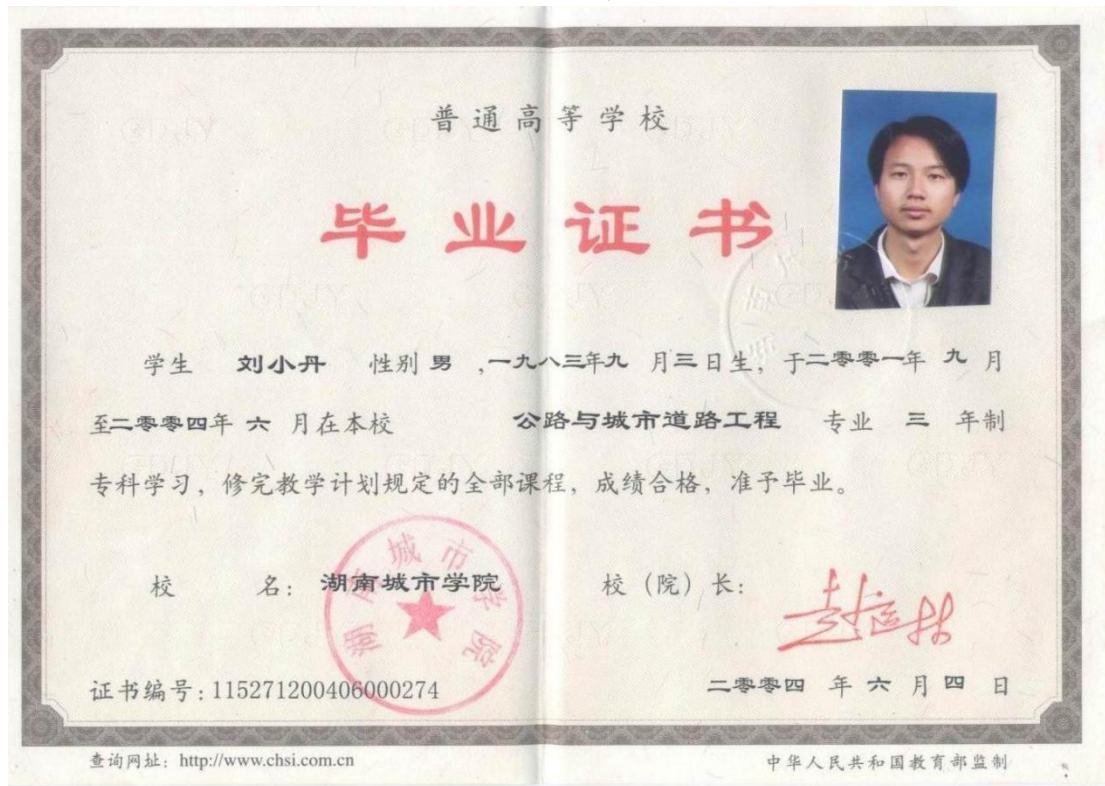 普通高等学校
毕业证书
学生 刘小丹 性别 男 ,一九八三年九 月三日生，于二零零一年 九 月
至二零零四年 六 月在本校 公路与城市道路工程 专业 三 年制
专科学习，修完教学计划规定的全部课程，成绩合格，准予毕业。
校 名：湖南城市学院 校（院）长：
湖南城市学院
证书编号：115271200406000274 二零零四 年 六 月 四 日
查询网址：http://www.chsi.com.cn 中华人民共和国教育部监制